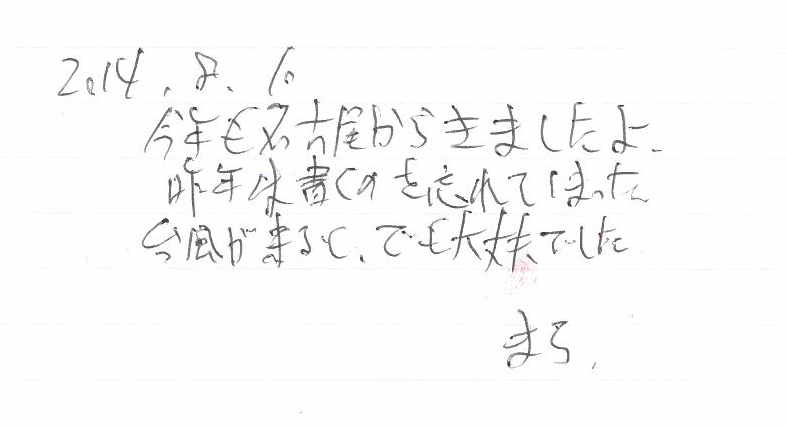 2014.8.6
今年も名古屋からきましたよ.
昨年は書くのを忘れてしまった
台風がまると、でも大丈夫でした
まろ.